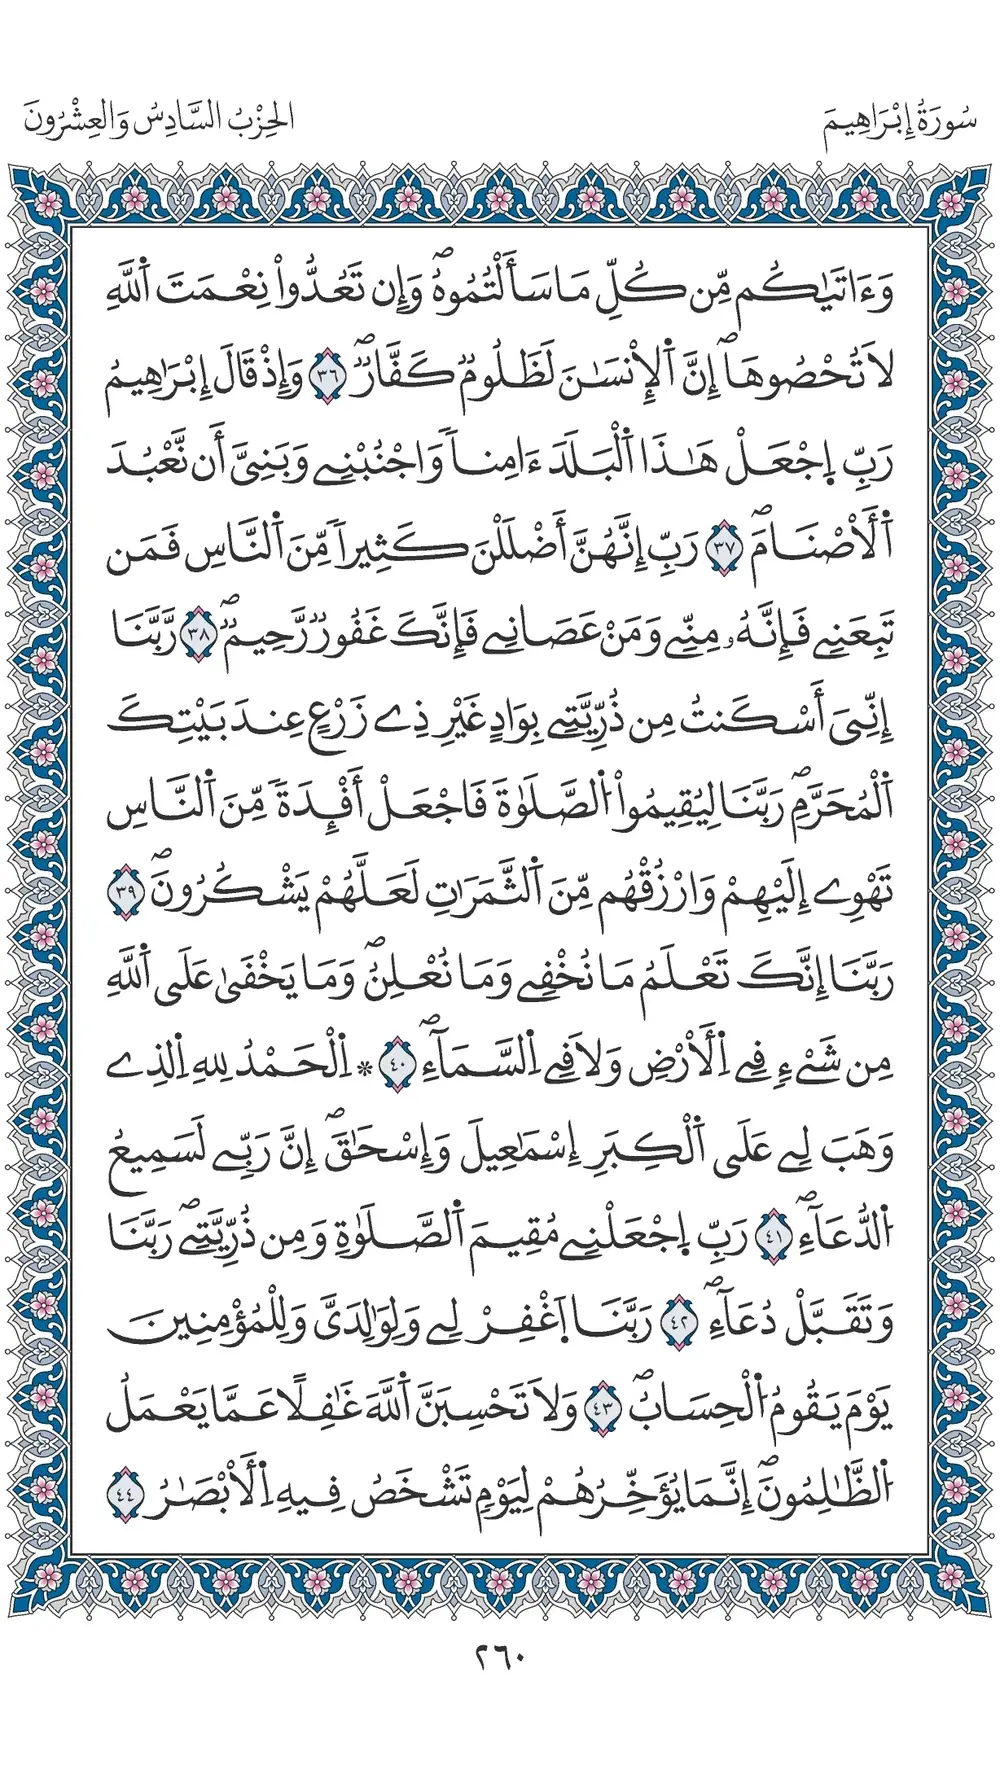 سُورَةُ إِبْرَاهِيمَ
الحِزْبُ السَّادِسُ وَالعِشْرُونَ
وَءَاتَىٰكُم مِّن كُلِّ مَا سَأَلْتُمُوهُۖ وَإِن تَعُدُّواْ نِعْمَتَ اَ۬للَّهِ
لَا تُحْصُوهَاۖ إِنَّ اَ۬لْإِنسَٰنَ لَظَلُومٞ كَفَّارٞۖ ٣٦ وَإِذْ قَالَ إِبْرَٰهِيمُ
رَبِّ اِ۪جْعَلْ هَٰذَا اَ۬لْبَلَدَ ءَامِناٗ وَاجْنُبْنِے وَبَنِيَّ أَن نَّعْبُدَ
اَ۬لْأَصْنَامَۖ ٣٧ رَبِّ إِنَّهُنَّ أَضْلَلْنَ كَثِيراٗ مِّنَ اَ۬لنَّاسِ فَمَن
تَبِعَنِے فَإِنَّهُۥ مِنِّے وَمَنْ عَصَانِے فَإِنَّكَ غَفُورٞ رَّحِيمٞۖ ٣٨ رَّبَّنَا
إِنِّيَ أَسْكَنتُ مِن ذُرِّيَّتِے بِوَادٍ غَيْرِ ذِے زَرْعٍ عِندَ بَيْتِكَ
اَ۬لْمُحَرَّمِۖ رَبَّنَا لِيُقِيمُواْ اُ۬لصَّلَوٰةَ فَاجْعَلْ أَفْـِٕدَةٗ مِّنَ اَ۬لنَّاسِ
تَهْوِے إِلَيْهِمْ وَارْزُقْهُم مِّنَ اَ۬لثَّمَرَٰتِ لَعَلَّهُمْ يَشْكُرُونَۖ ٣٩
رَبَّنَا إِنَّكَ تَعْلَمُ مَا نُخْفِے وَمَا نُعْلِنُۖ وَمَا يَخْفَىٰ عَلَى اَ۬للَّهِ
مِن شَےْءٖ فِے اِ۬لْأَرْضِ وَلَا فِے اِ۬لسَّمَآءِۖ ٤٠ * اِ۬لْحَمْدُ لِلهِ اِ۬لذِے
وَهَبَ لِے عَلَى اَ۬لْكِبَرِ إِسْمَٰعِيلَ وَإِسْحَٰقَۖ إِنَّ رَبِّے لَسَمِيعُ
اُ۬لدُّعَآءِۖ ٤١ رَبِّ اِ۪جْعَلْنِے مُقِيمَ اَ۬لصَّلَوٰةِ وَمِن ذُرِّيَّتِےۖ رَبَّنَا
وَتَقَبَّلْ دُعَآءِۖ ٤٢ رَبَّنَا اَ۪غْفِرْ لِے وَلِوَٰلِدَيَّ وَلِلْمُؤْمِنِينَ
يَوْمَ يَقُومُ اُ۬لْحِسَابُۖ ٤٣ وَلَا تَحْسِبَنَّ اَ۬للَّهَ غَٰفِلًا عَمَّا يَعْمَلُ
اُ۬لظَّٰلِمُونَۖ إِنَّمَا يُؤَخِّرُهُمْ لِيَوْمٖ تَشْخَصُ فِيهِ اِ۬لْأَبْصَٰرُ ٤٤
٢٦٠